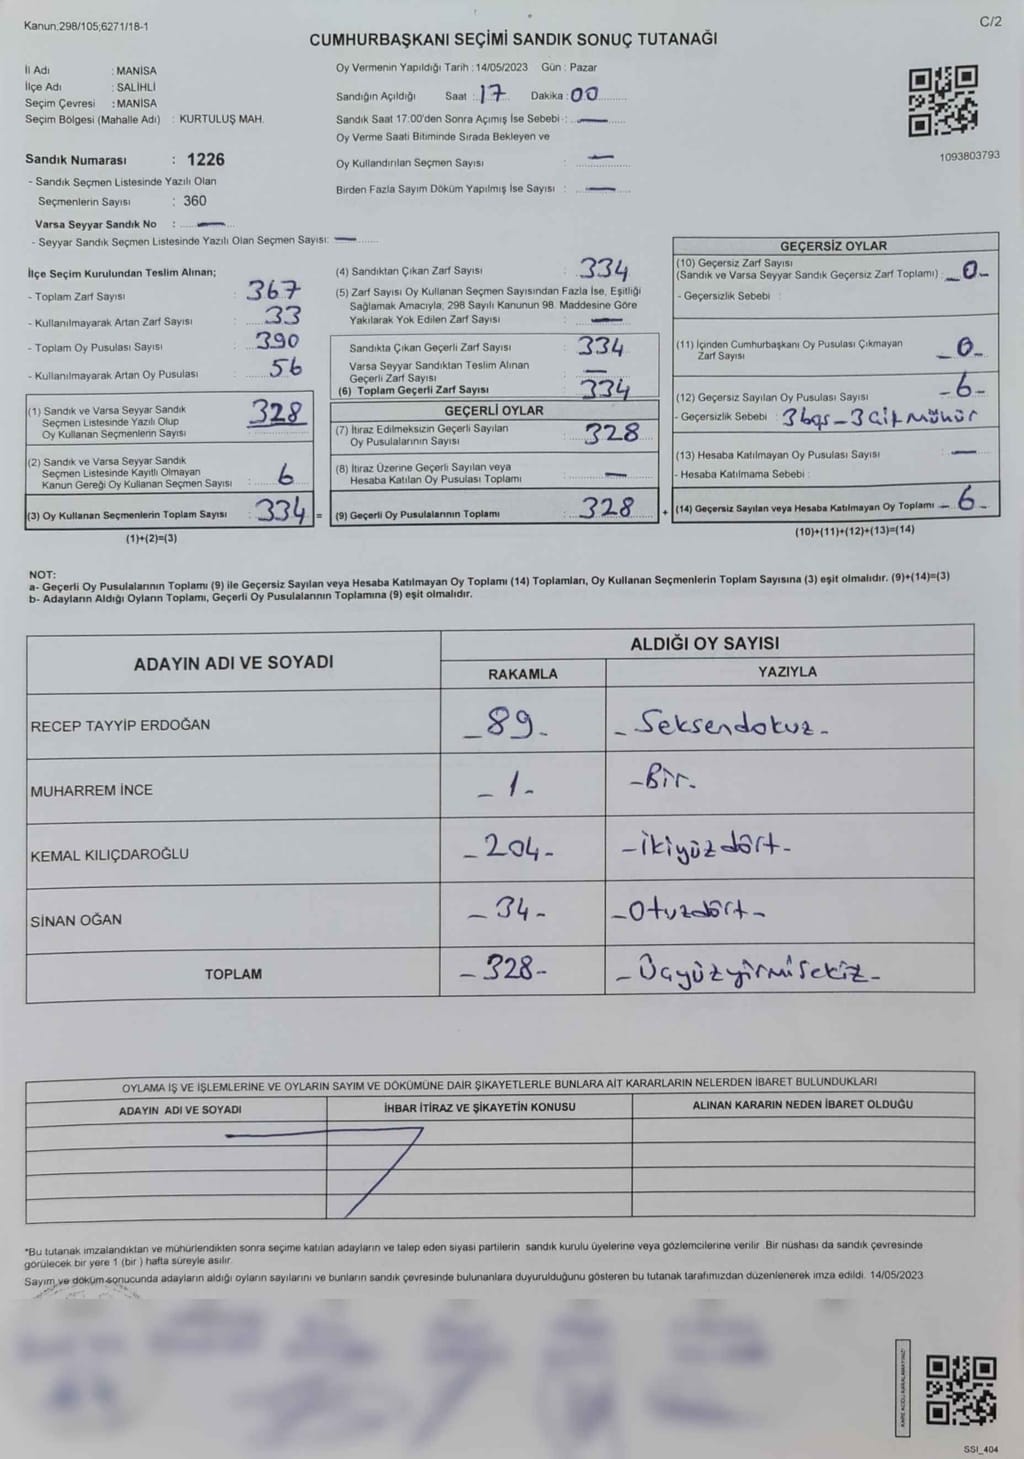 Kanun:298/105;6271/18-1
C/2
CUMHURBAŞKANI SEÇİMİ SANDIK SONUÇ TUTANAĞI
İl Adı : MANİSA
İlçe Adı : SALİHLİ
Seçim Çevresi : MANİSA
Seçim Bölgesi (Mahalle Adı) : KURTULUŞ MAH.
Sandık Numarası : 1226
- Sandık Seçmen Listesinde Yazılı Olan
Seçmenlerin Sayısı : 360
Varsa Seyyar Sandık No :
- Seyyar Sandık Seçmen Listesinde Yazılı Olan Seçmen Sayısı:
Oy Vermenin Yapıldığı Tarih : 14/05/2023 Gün : Pazar
Sandığın Açıldığı Saat : 17 Dakika : 00
Sandık Saat 17:00'den Sonra Açımış İse Sebebi :
Oy Verme Saati Bitiminde Sırada Bekleyen ve
Oy Kullandırılan Seçmen Sayısı :
Birden Fazla Sayım Döküm Yapılmış İse Sayısı :
1093803793
İlçe Seçim Kurulundan Teslim Alınan;
- Toplam Zarf Sayısı : 367
- Kullanılmayarak Artan Zarf Sayısı : 33
- Toplam Oy Pusulası Sayısı : 390
- Kullanılmayarak Artan Oy Pusulası : 56
(1) Sandık ve Varsa Seyyar Sandık
Seçmen Listesinde Yazılı Olup
Oy Kullanan Seçmenlerin Sayısı : 328
(2) Sandık ve Varsa Seyyar Sandık
Seçmen Listesinde Kayıtlı Olmayan
Kanun Gereği Oy Kullanan Seçmen Sayısı : 6
(3) Oy Kullanan Seçmenlerin Toplam Sayısı : 334 =
(1)+(2)=(3)
(4) Sandıktan Çıkan Zarf Sayısı : 334
(5) Zarf Sayısı Oy Kullanan Seçmen Sayısından Fazla İse, Eşitliği
Sağlamak Amacıyla; 298 Sayılı Kanunun 98. Maddesine Göre
Yakılarak Yok Edilen Zarf Sayısı :
Sandıkta Çıkan Geçerli Zarf Sayısı : 334
Varsa Seyyar Sandıktan Teslim Alınan
Geçerli Zarf Sayısı :
(6) Toplam Geçerli Zarf Sayısı : 334
GEÇERLİ OYLAR
(7) İtiraz Edilmeksizin Geçerli Sayılan
Oy Pusulalarının Sayısı : 328
(8) İtiraz Üzerine Geçerli Sayılan veya
Hesaba Katılan Oy Pusulası Toplamı :
(9) Geçerli Oy Pusulalarının Toplamı : 328 +
GEÇERSİZ OYLAR
(10) Geçersiz Zarf Sayısı
(Sandık ve Varsa Seyyar Sandık Geçersiz Zarf Toplamı) : -0-
- Geçersizlik Sebebi :
(11) İçinden Cumhurbaşkanı Oy Pusulası Çıkmayan
Zarf Sayısı -0-
(12) Geçersiz Sayılan Oy Pusulası Sayısı : -6-
- Geçersizlik Sebebi : 3 boş - 3 Çift mühür
(13) Hesaba Katılmayan Oy Pusulası Sayısı :
- Hesaba Katılmama Sebebi :
(14) Geçersiz Sayılan veya Hesaba Katılmayan Oy Toplamı : -6-
(10)+(11)+(12)+(13)=(14)
NOT:
a- Geçerli Oy Pusulalarının Toplamı (9) ile Geçersiz Sayılan veya Hesaba Katılmayan Oy Toplamı (14) Toplamları, Oy Kullanan Seçmenlerin Toplam Sayısına (3) eşit olmalıdır. (9)+(14)=(3)
b- Adayların Aldığı Oyların Toplamı, Geçerli Oy Pusulalarının Toplamına (9) eşit olmalıdır.
ADAYIN ADI VE SOYADI ALDIĞI OY SAYISI
RAKAMLA YAZIYLA
RECEP TAYYİP ERDOĞAN -89- -Seksendokuz-
MUHARREM İNCE -1- -Bir-
KEMAL KILIÇDAROĞLU -204- -İkiyüzdört-
SİNAN OĞAN -34- -Otuzdört-
TOPLAM -328- -Üçyüzyirmisekiz-
OYLAMA İŞ VE İŞLEMLERİNE VE OYLARIN SAYIM VE DÖKÜMÜNE DAİR ŞİKAYETLERLE BUNLARA AİT KARARLARIN NELERDEN İBARET BULUNDUKLARI
ADAYIN ADI VE SOYADI İHBAR İTİRAZ VE ŞİKAYETİN KONUSU ALINAN KARARIN NEDEN İBARET OLDUĞU
*Bu tutanak imzalandıktan ve mühürlendikten sonra seçime katılan adayların ve talep eden siyasi partilerin sandık kurulu üyelerine veya gözlemcilerine verilir. Bir nüshası da sandık çevresinde
görülecek bir yere 1 (bir ) hafta süreyle asılır.
Sayım ve döküm sonucunda adayların aldığı oyların sayılarını ve bunların sandık çevresinde bulunanlara duyurulduğunu gösteren bu tutanak tarafımızdan düzenlenerek imza edildi. 14/05/2023
KARE KODU KARALAMAYINIZ!
SSI_404